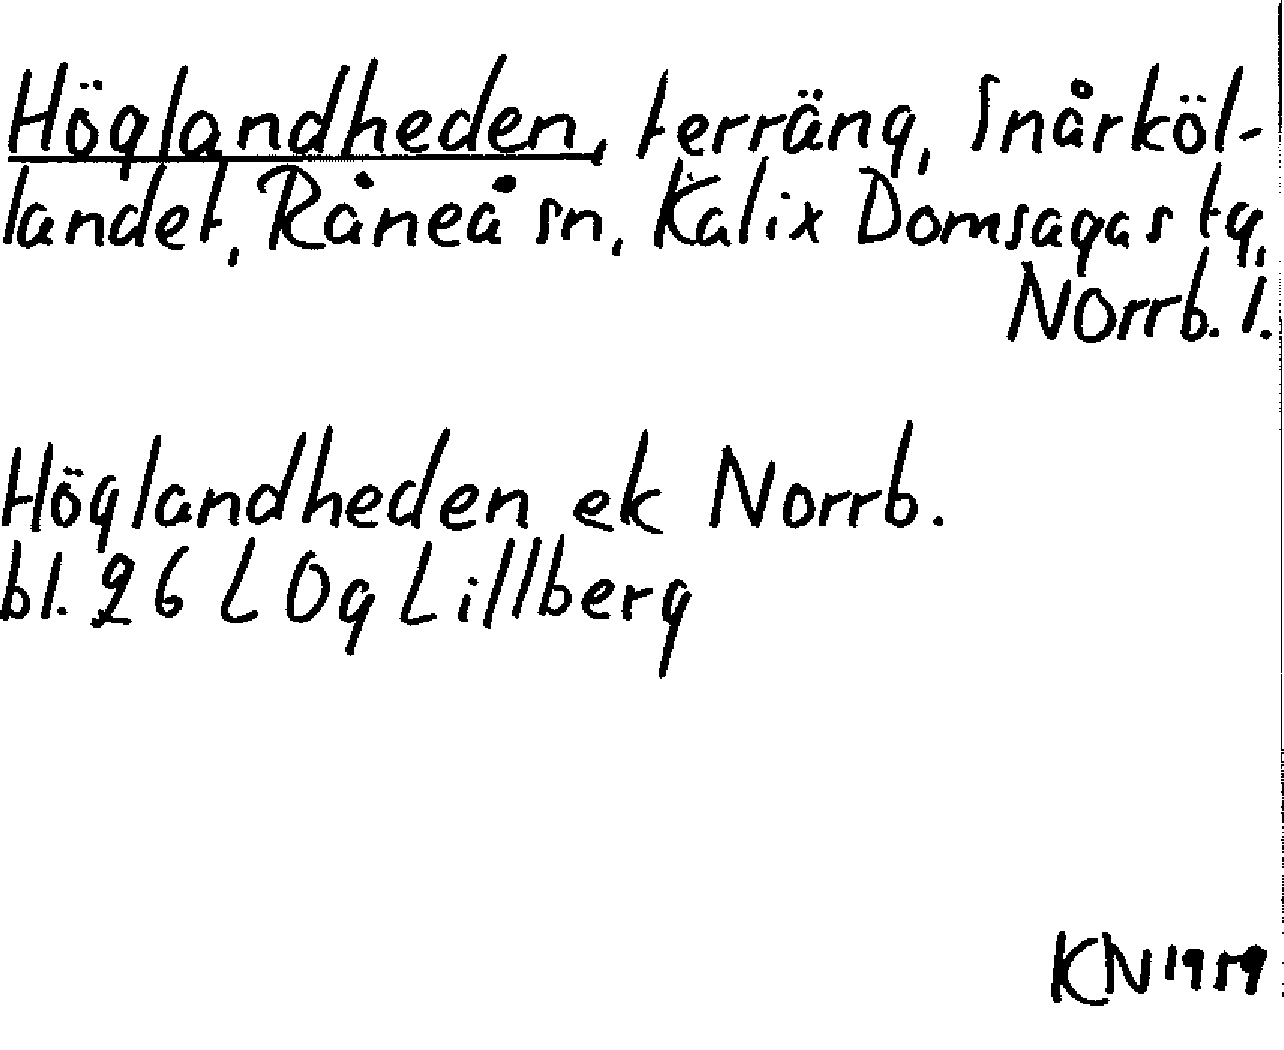 Höglandheden, terräng, Snårköl-
landet, Råneå sn, Kalix Domsagas tg,
Norrb. l.
Höglandheden ek Norrb.
bl. 26 L Og Lillberg
KN 1959